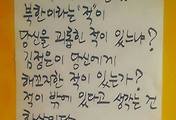 북한이라는 "적"이
당신을 괴롭힌 적이 있느냐?
김정은이 당신에게
해꼬지한 적이 있는가?
적이 밖에 있다고 생각는 건
환상이다